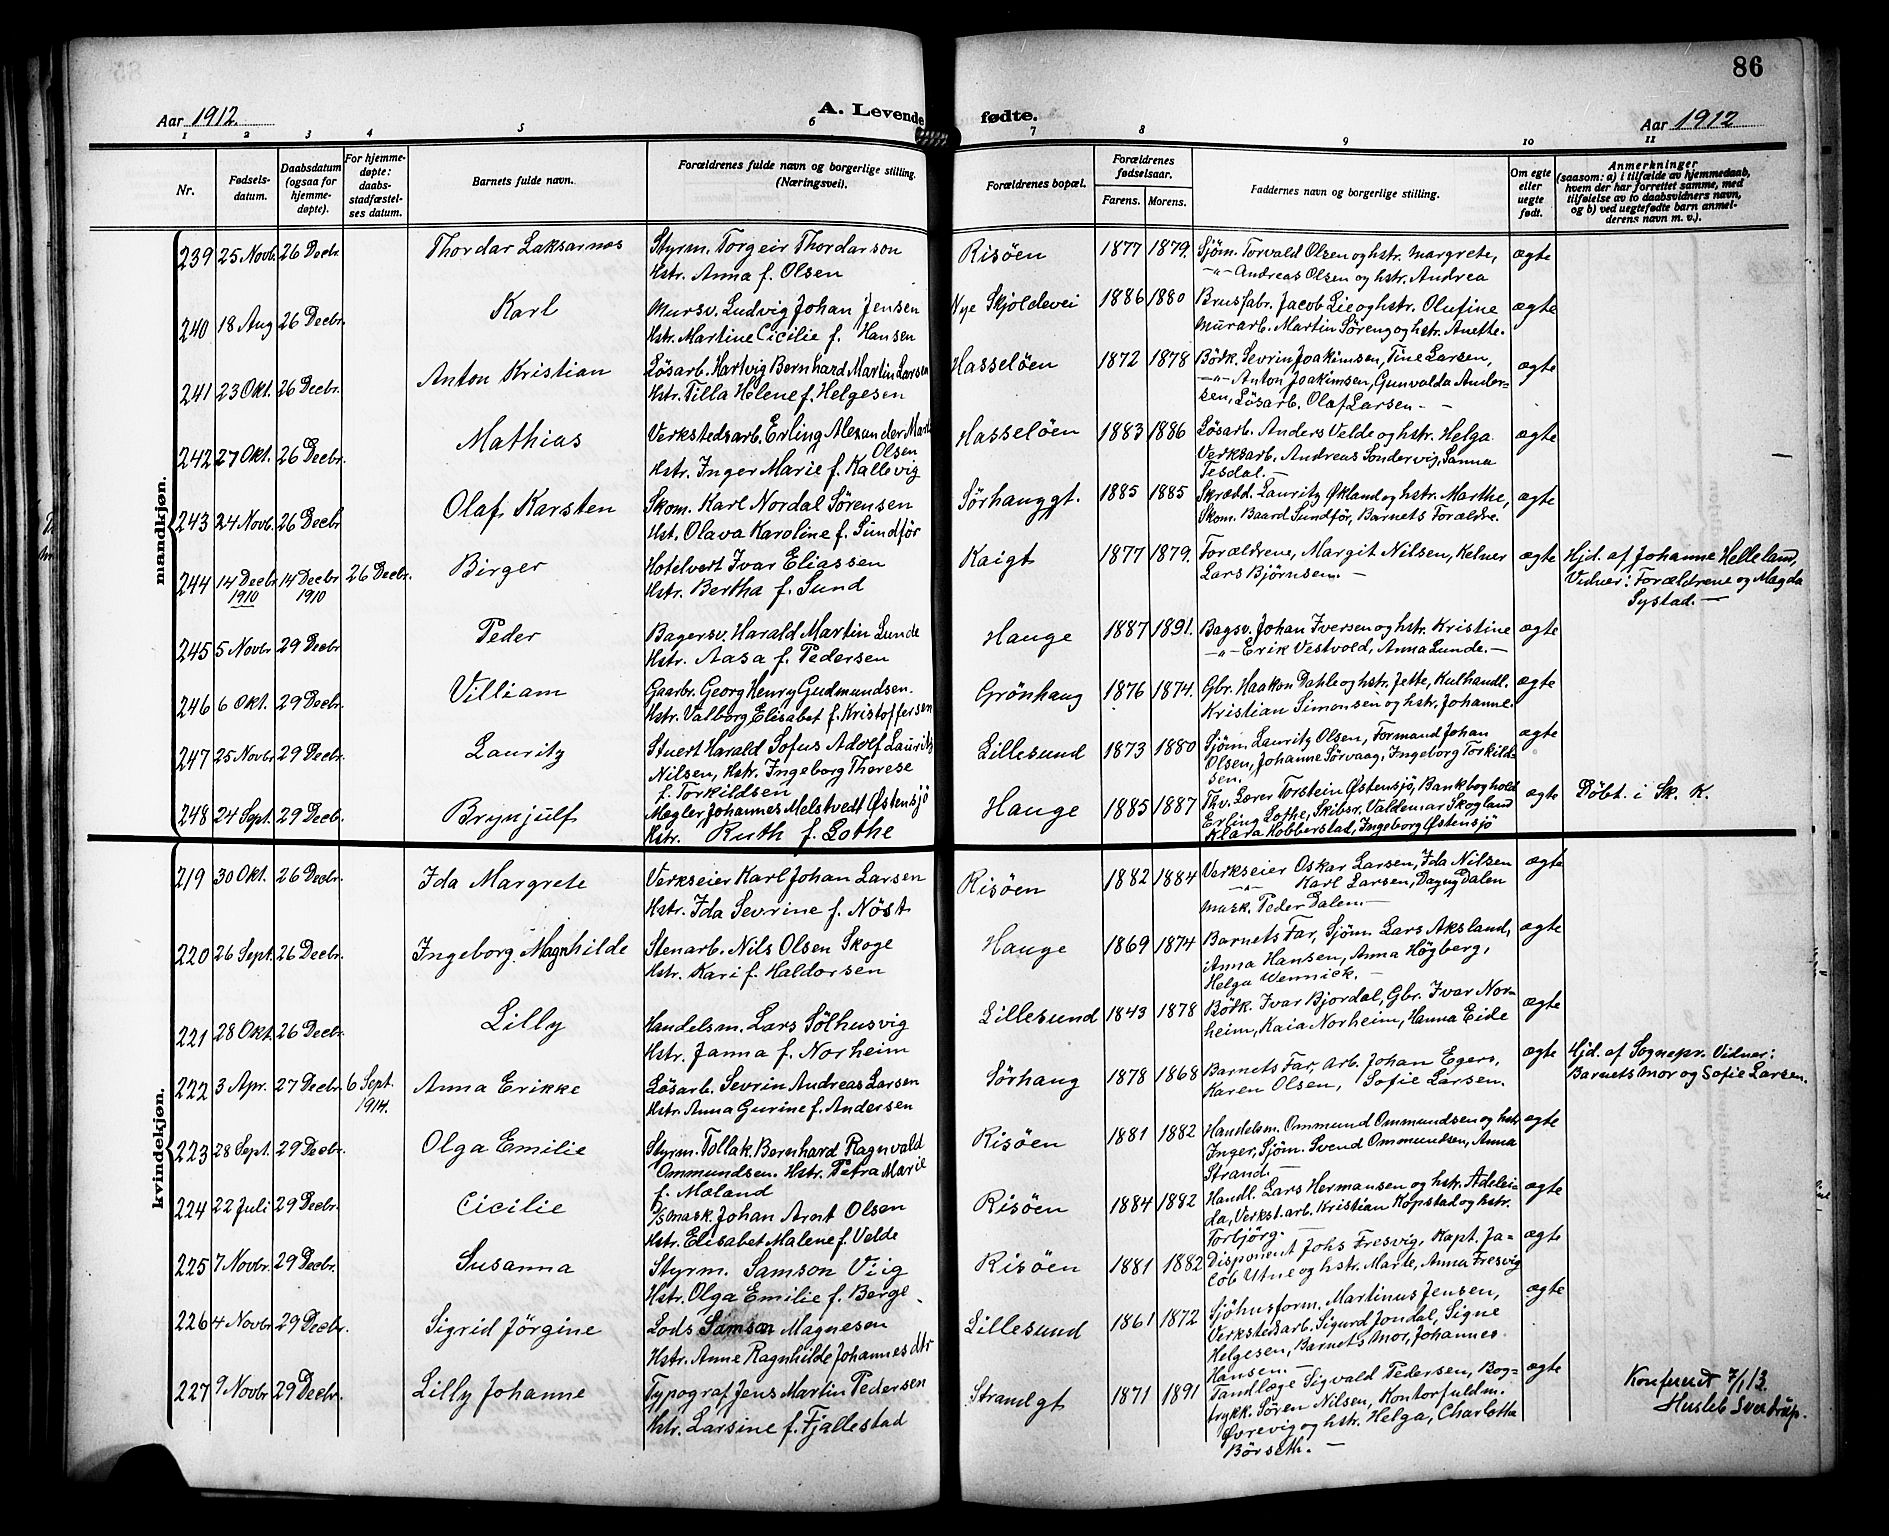 86
Aar 1912.
A. Levende fødte.
Aar 1912
1 2 3 4 5 6 7 8 9 10 11
Nr.
Fødsels-
datum.
Daabsdatum
(ogsaa for
hjemme-
døpte).
For hjemme-
døpte:
daabs-
stadfæstel-
ses datum.
Barnets fulde navn.
Forældrenes fulde navn og borgerlige stilling.
(Næringsvei).
Forældrenes bopæl.
Forældrenes
fødselsaar.
Farens. Morens.
Faddernes navn og borgerlige stilling.
Om egte
eller
uegte
født.
Anmerkninger
(saasom: a) i tilfælde av hjemmedaab,
hvem der har forrettet samme, med
tilføielse av to daabsvidners navn,
og b) ved uegtefødte barn anmel-
derens navn m. v.).
mandkjøn.
239 25 Novb. 26 Decbr. Thordar Laksarnos Styrm. Torgeir Thordarson Risöen 1877 1879. Sjöm. Torvald Olsen og hstr. Margrete, ægte
Hstr. Anna f. Olsen —"— Andreas Olsen og hstr. Andrea
240 18 Aug 26 Decbr. Karl Mursv. Ludvig Johan Jensen Nye Skjoldevei 1886 1880 Brusfabr. Jacob Lie og hstr. Olufine ægte
Hstr. Martine Cicilie f. Hansen Murarb. Martin Söreng og hstr. Anette.
241 23 Okt. 26 Decbr. Anton Kristian Løsarb. Hartvig Bernhard Martin Larsen Hasselöen 1872 1878 Bödk. Sevrin Joakimsen, Tine Larsen, ægte
Hstr. Tilla Helene f. Helgesen —"— Anton Joakimsen, Gunvalda Ander-
sen, Løsarb. Olaf Larsen —
242 27 Okt. 26 Decbr. Mathias Verkstedsarb. Erling Alexander Mart. Hasselöen 1883 1886 Løsarb. Anders Velde og hstr. Helga ægte
Olsen Verksarb. Andreas Sondervig, Sanna
Hstr. Inger Marie f. Kallevig Tesdal. —
243 24 Novb. 26 Decbr. Olaf Karsten Skom. Karl Nordal Sörensen Sörhauggt. 1885 1885 Skrædd. Lauritz Økland og hstr. Marthe, ægte
Hst. Olava Karoline f. Sundför Skom. Baard Sundför, Barnets Forældre.
244 14 Decbr 1910 14 Decbr 1910 26 Decbr. Birger Hotelvert Ivar Eliassen Kaigt 1877 1879. Forældrene, Margit Nilsen, Kelner ægte Hjd. af Johanne Helleland,
Hstr. Bertha f. Sund Lars Bjørnsen. — Vidner: Forældrene og Magda
Systad. —
245 5 Novbr 29 Decbr Peder Bagersv. Harald Martin Lunde Hauge 1887 1891. Bagsv. Johan Iversen og hstr. Kristine ægte
Hstr. Aasa f. Pedersen —"— Erik Vestvold, Anna Lunde. —
246 6 Okt. 29 Decbr. Villiam Gaarbr. Georg Henry Gudmundsen. Grönhaug 1876 1874. Gbr. Haakon Dahle og hstr. Jette, Kulhandl. ægte
Hstr. Valborg Elisabet f. Kristoffersen Kristian Simonsen og hstr. Johanne.
247 25 Novbr 29 Decbr. Lauritz Stuert Harald Sofus Adolf Laurits Lillesund 1873 1880 Sjöm. Lauritz Olsen, Formand Johan ægte
Nilsen, Hstr. Ingeborg Therese Olsen, Johanne Sörvaag, Ingeborg Torkild-
f. Torkildsen sen.
248 24 Sept. 29 Decb. Brynjulf Mægler Johannes Melstvedt Østensjö Hauge 1885 1887 Thv. Lærer Torstein Østensjö, Bankboghold. ægte Döbt. i Sk. K.
Hstr. Ruth f. Lothe Erling Lothe, Skibsr. Valdemar Skogland
Klara Kobberstad, Ingeborg Østensjö
kvindekjøn.
219 30 Okt. 26 Decbr. Ida Margrete Verkseier Karl Johan Larsen Risöen 1882 1884 Verkseier Oskar Larsen, Ida Nilsen ægte
Hstr. Ida Sevrine f. Nöst —"— Karl Larsen, Dagny Dalen
Mask. Peder Dalen. —
220 26 Sept. 26 Decbr. Ingeborg Magnhilde Stenarb. Nils Olsen Skoge Hauge 1869 1874 Barnets Far, Sjöm. Lars Aksland, ægte
Hstr. Kari f. Haldorsen Anna Hansen, Anna Högberg,
Helga Wennick. —
221 28 Okt. 26 Decbr. Lilly Handelsm. Lars Sølhusvig Lillesund 1843 1878 Bödk. Ivar Bjordal, Gbr. Ivar Nor- ægte
Hstr. Janna f. Norheim heim, Kaia Norheim, Hanna Eide
222 3 Apr. 27 Decbr. 6 Sept. 1914. Anna Erikke Løsarb. Sevrin Andreas Larsen Sörhaug 1878 1868 Barnets Far, Arb. Johan Egers, ægte Hjd. af Sognepr. Vidner:
Hstr. Anna Gurine f. Andersen Karen Olsen, Sofie Larsen. Barnets Mor og Sofie Larsen.
223 28 Sept. 29 Decbr. Olga Emilie Styrm. Tollak Bernhard Ragnvald Risöen 1881 1882 Handelsm. Ommund Ommundsen og hstr ægte
Ommundsen. Hstr. Petra Marie Inger, Sjöm. Svend Ommundsen, Anna
f. Mæland Strand. —
224 22 Juli 29 Decbr. Cicilie D/S Mask. Johan Arnt Olsen Risöen 1884 1882 Handl. Lars Hermansen og hstr. Adelei- ægte
Hstr. Elisabet Malene f. Velde da, Verkst.arb. Kristian Kopstad og hstr.
Torbjörg.
225 7 Novbr. 29 Decbr. Susanna Styrm. Samson Viig Risöen 1881 1882 Disponent Johs Fresvig, Kapt. Ja- ægte
Hstr. Olga Emilie f. Berge cob Utne og hstr. Marte, Anna Fresvig
226 4 Novbr 29 Decbr. Sigrid Jörgine Lods Samson Magnesen Lillesund 1861 1872 Sjöhusform. Martinus Jensen, ægte
Hstr. Anne Ragnhilde Johannesdtr Verkstedsarb. Sigurd Jondal, Signe
Helgesen, Barnets Mor, Johannes
Hansen. —
227 9 Novbr 29 Decbr. Lilly Johanne Typograf Jens Martin Pedersen Strandgt 1871 1891 Tandlæge Sigvald Pedersen, Bog- ægte Konferert 7/1 13.
Hstr. Larsine f. Fjallestad trykk. Sören Nilsen, Kontorfuldm.
Øvrevig og hstr. Helga, Charlotta
Börseth. —